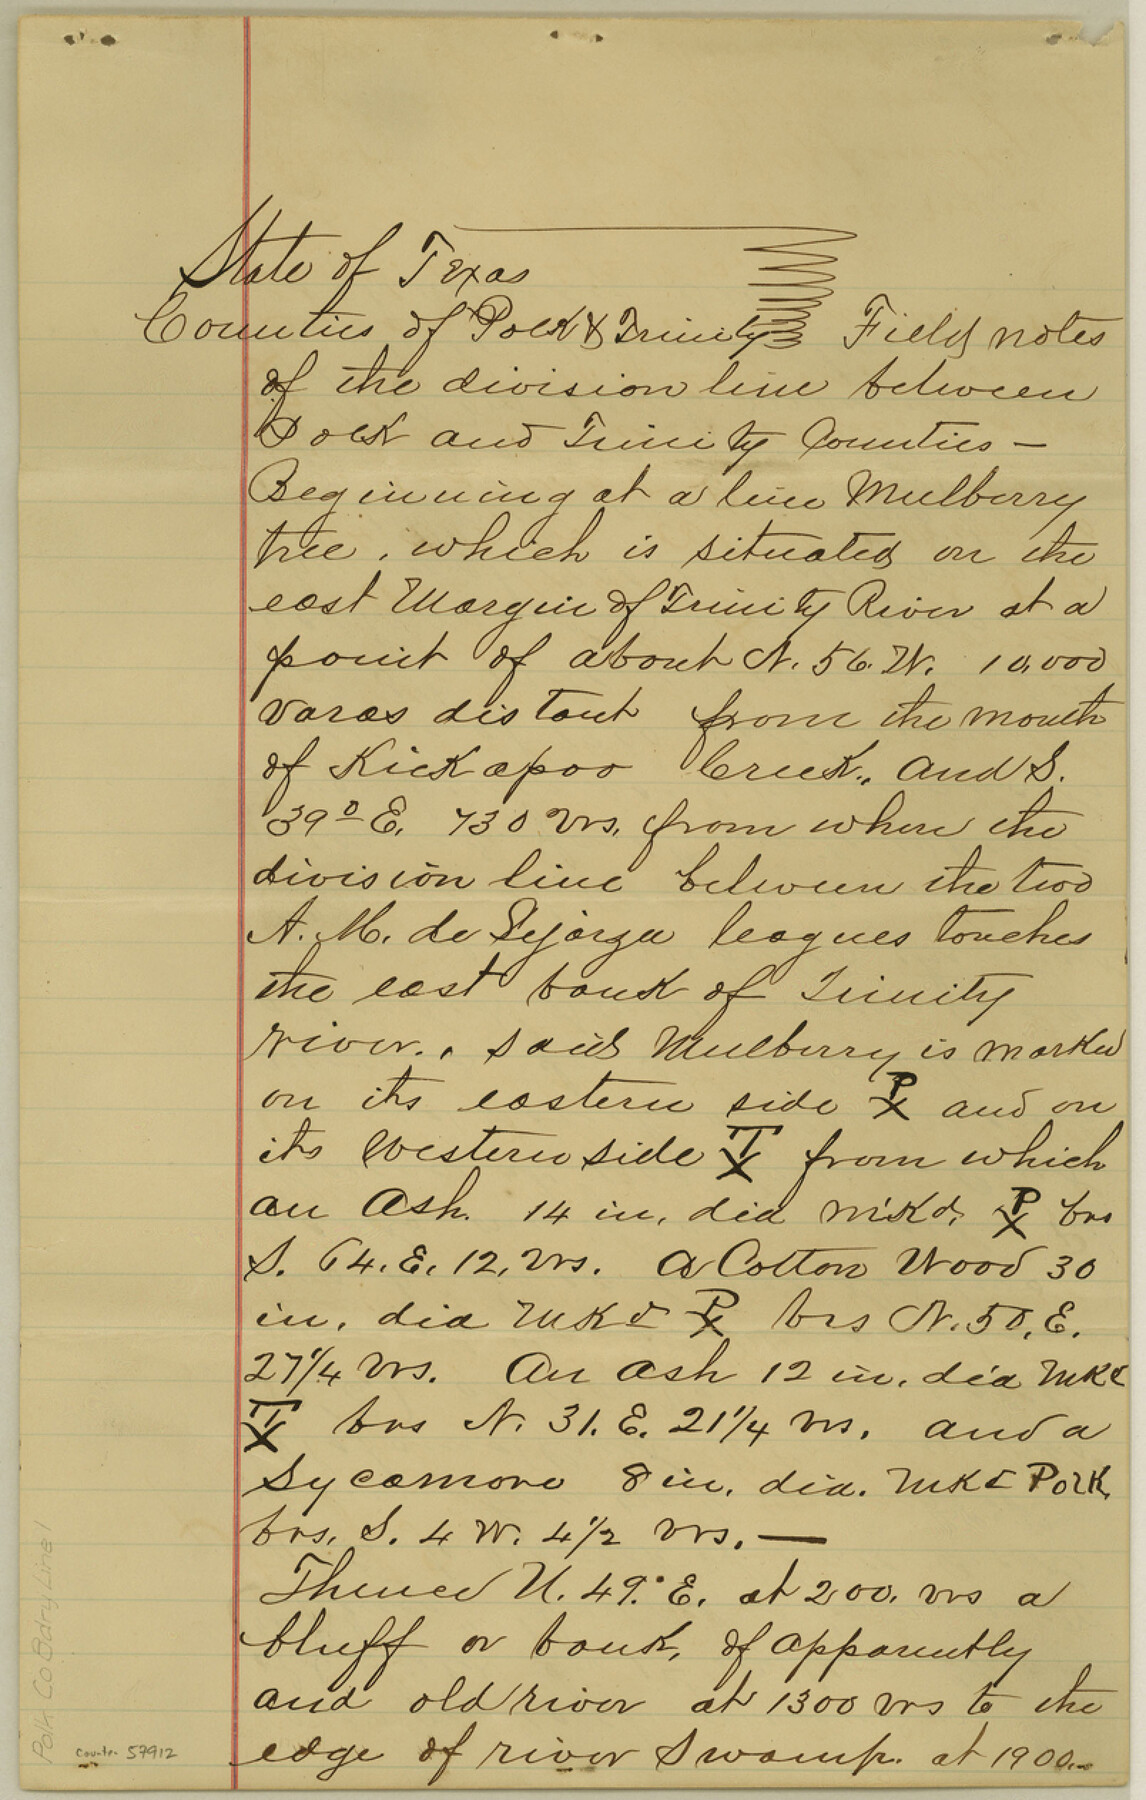 State of Texas
Counties of Polk & Trinity Field notes
of the division line between
Polk and Trinity Counties —
Beginning at a line Mulberry
tree, which is situated on the
east Margin of Trinity River at a
point of about N. 56. W. 10,000
varas distant from the mouth
of Kickapoo Creek., and S.
39° E. 730 vrs. from where the
division line between the two
A. M. de leagues touches
the east bank of Trinity
river., said Mulberry is marked
on its eastern side P X and on
its Western side T X from which
an Ash. 14 in. dia mkd. P X brs
S. 64. E. 12. vrs. a Cotton Wood 30
in. dia Mkd P X brs N. 50. E.
27 1/4 vrs. An ash 12 in. dia Mkd
T X brs N. 31. E. 21 1/4 vrs. and a
Sycamore 8 in. dia. Mkd Polk
brs. S. 4 W. 4 1/2 vrs. —
Thence N. 49.° E. at 200. vrs a
bluff or bank, of apparently
and old river at 1300 vrs to the
edge of river Swamp. at 1900
Polk Co Bdry Line 1
counter 57912